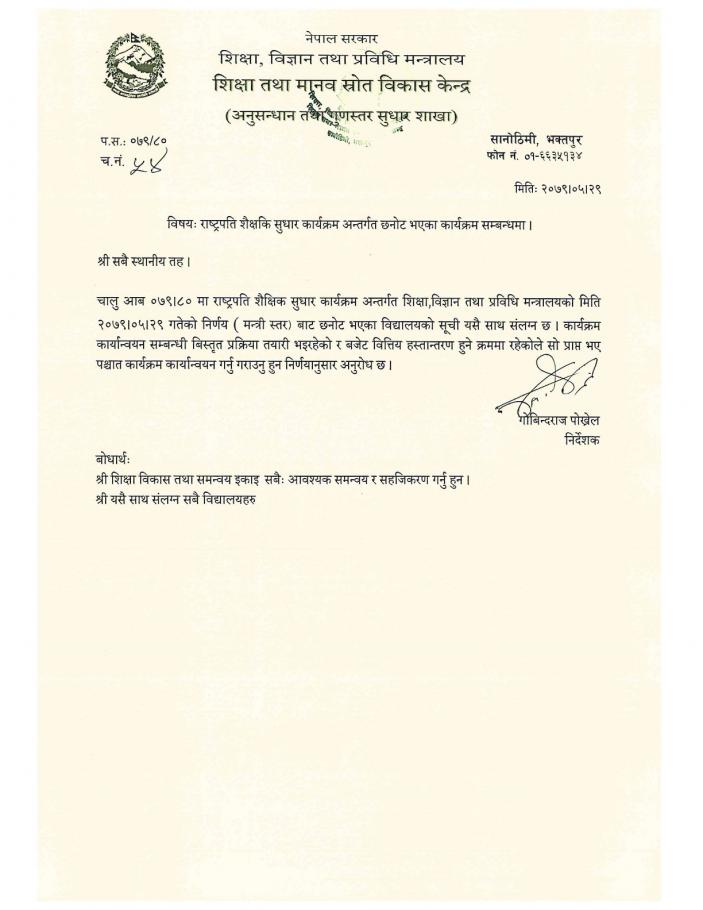 नेपाल सरकार
शिक्षा, विज्ञान तथा प्रविधि मन्त्रालय
शिक्षा तथा मानव स्रोत विकास केन्द्र
(अनुसन्धान तथा गुणस्तर सुधार शाखा)
प.स.: ०७९/८०
सानोठिमी, भक्तपुर
च.नं. ५४
फोन नं. ०१-६६३५१३४
मितिः २०७९।०५।२९
विषयः राष्ट्रपति शैक्षकि सुधार कार्यक्रम अन्तर्गत छनोट भएका कार्यक्रम सम्बन्धमा ।
श्री सबै स्थानीय तह ।
चालु आब ०७९।८० मा राष्ट्रपति शैक्षिक सुधार कार्यक्रम अन्तर्गत शिक्षा,विज्ञान तथा प्रविधि मन्त्रालयको मिति
२०७९।०५।२९ गतेको निर्णय ( मन्त्री स्तर) बाट छनोट भएका विद्यालयको सूची यसै साथ संलग्न छ । कार्यक्रम
कार्यान्वयन सम्बन्धी बिस्तृत प्रक्रिया तयारी भइरहेको र बजेट वित्तिय हस्तान्तरण हुने क्रममा रहेकोले सो प्राप्त भए
पश्चात कार्यक्रम कार्यान्वयन गर्नु गराउनु हुन निर्णयानुसार अनुरोध छ ।
गोबिन्दराज पोख्रेल
निर्देशक
बोधार्थः
श्री शिक्षा विकास तथा समन्वय इकाइ सबैः आवश्यक समन्वय र सहजिकरण गर्नु हुन ।
श्री यसै साथ संलग्न सबै विद्यालयहरु